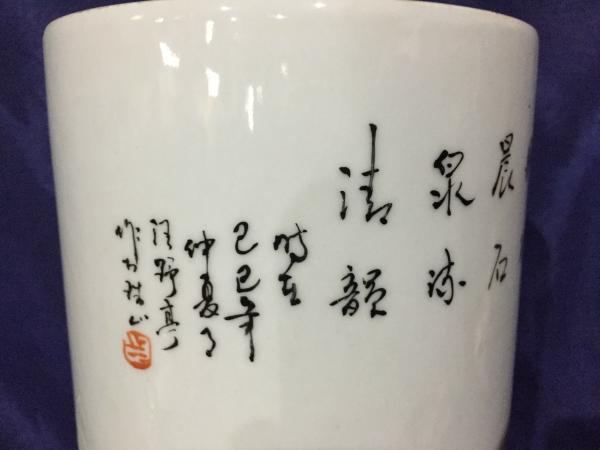 晨石
泉流
清韻
時在
己巳年
仲夏月
汪野亭
作於珠山